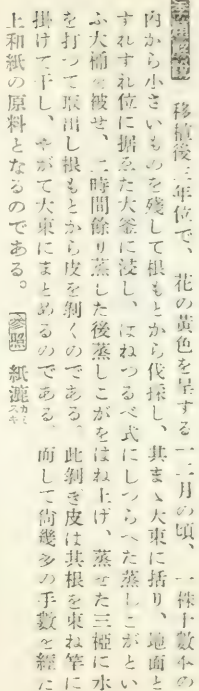 移植後三年位で、花の黄色を呈する一二月の頃、一株十数本の
内から小さいものを残して根もとから伐採し、其まゝ大束に括り、地面と
すれすれ位に据ゑた大釜に浸し、はねつるべ式にしつらへた蒸しこがとい
ふ大桶を被せ、二時間餘り蒸した後蒸しこがをはね上げ、蒸せた三椏に水
を打つて取出し根もとから皮を剥くのである。此剥き皮は其根を束ね竿に
掛けて干し、やがて大束にまとめるのである。而して尚幾多の手數を經た
上和紙の原料となるのである。参照 紙漉カミスキ